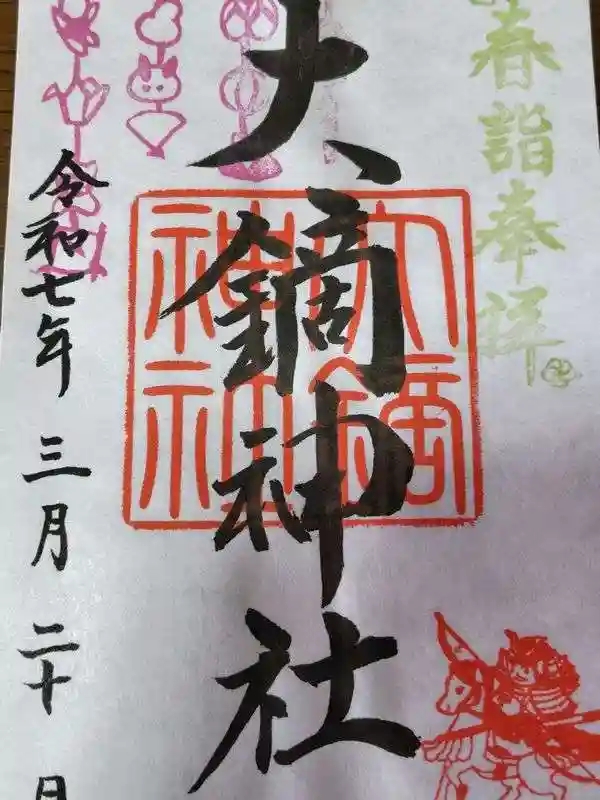 春詣奉拝
大鏑神社
大鏑神社
令和七年 三月 二十 日